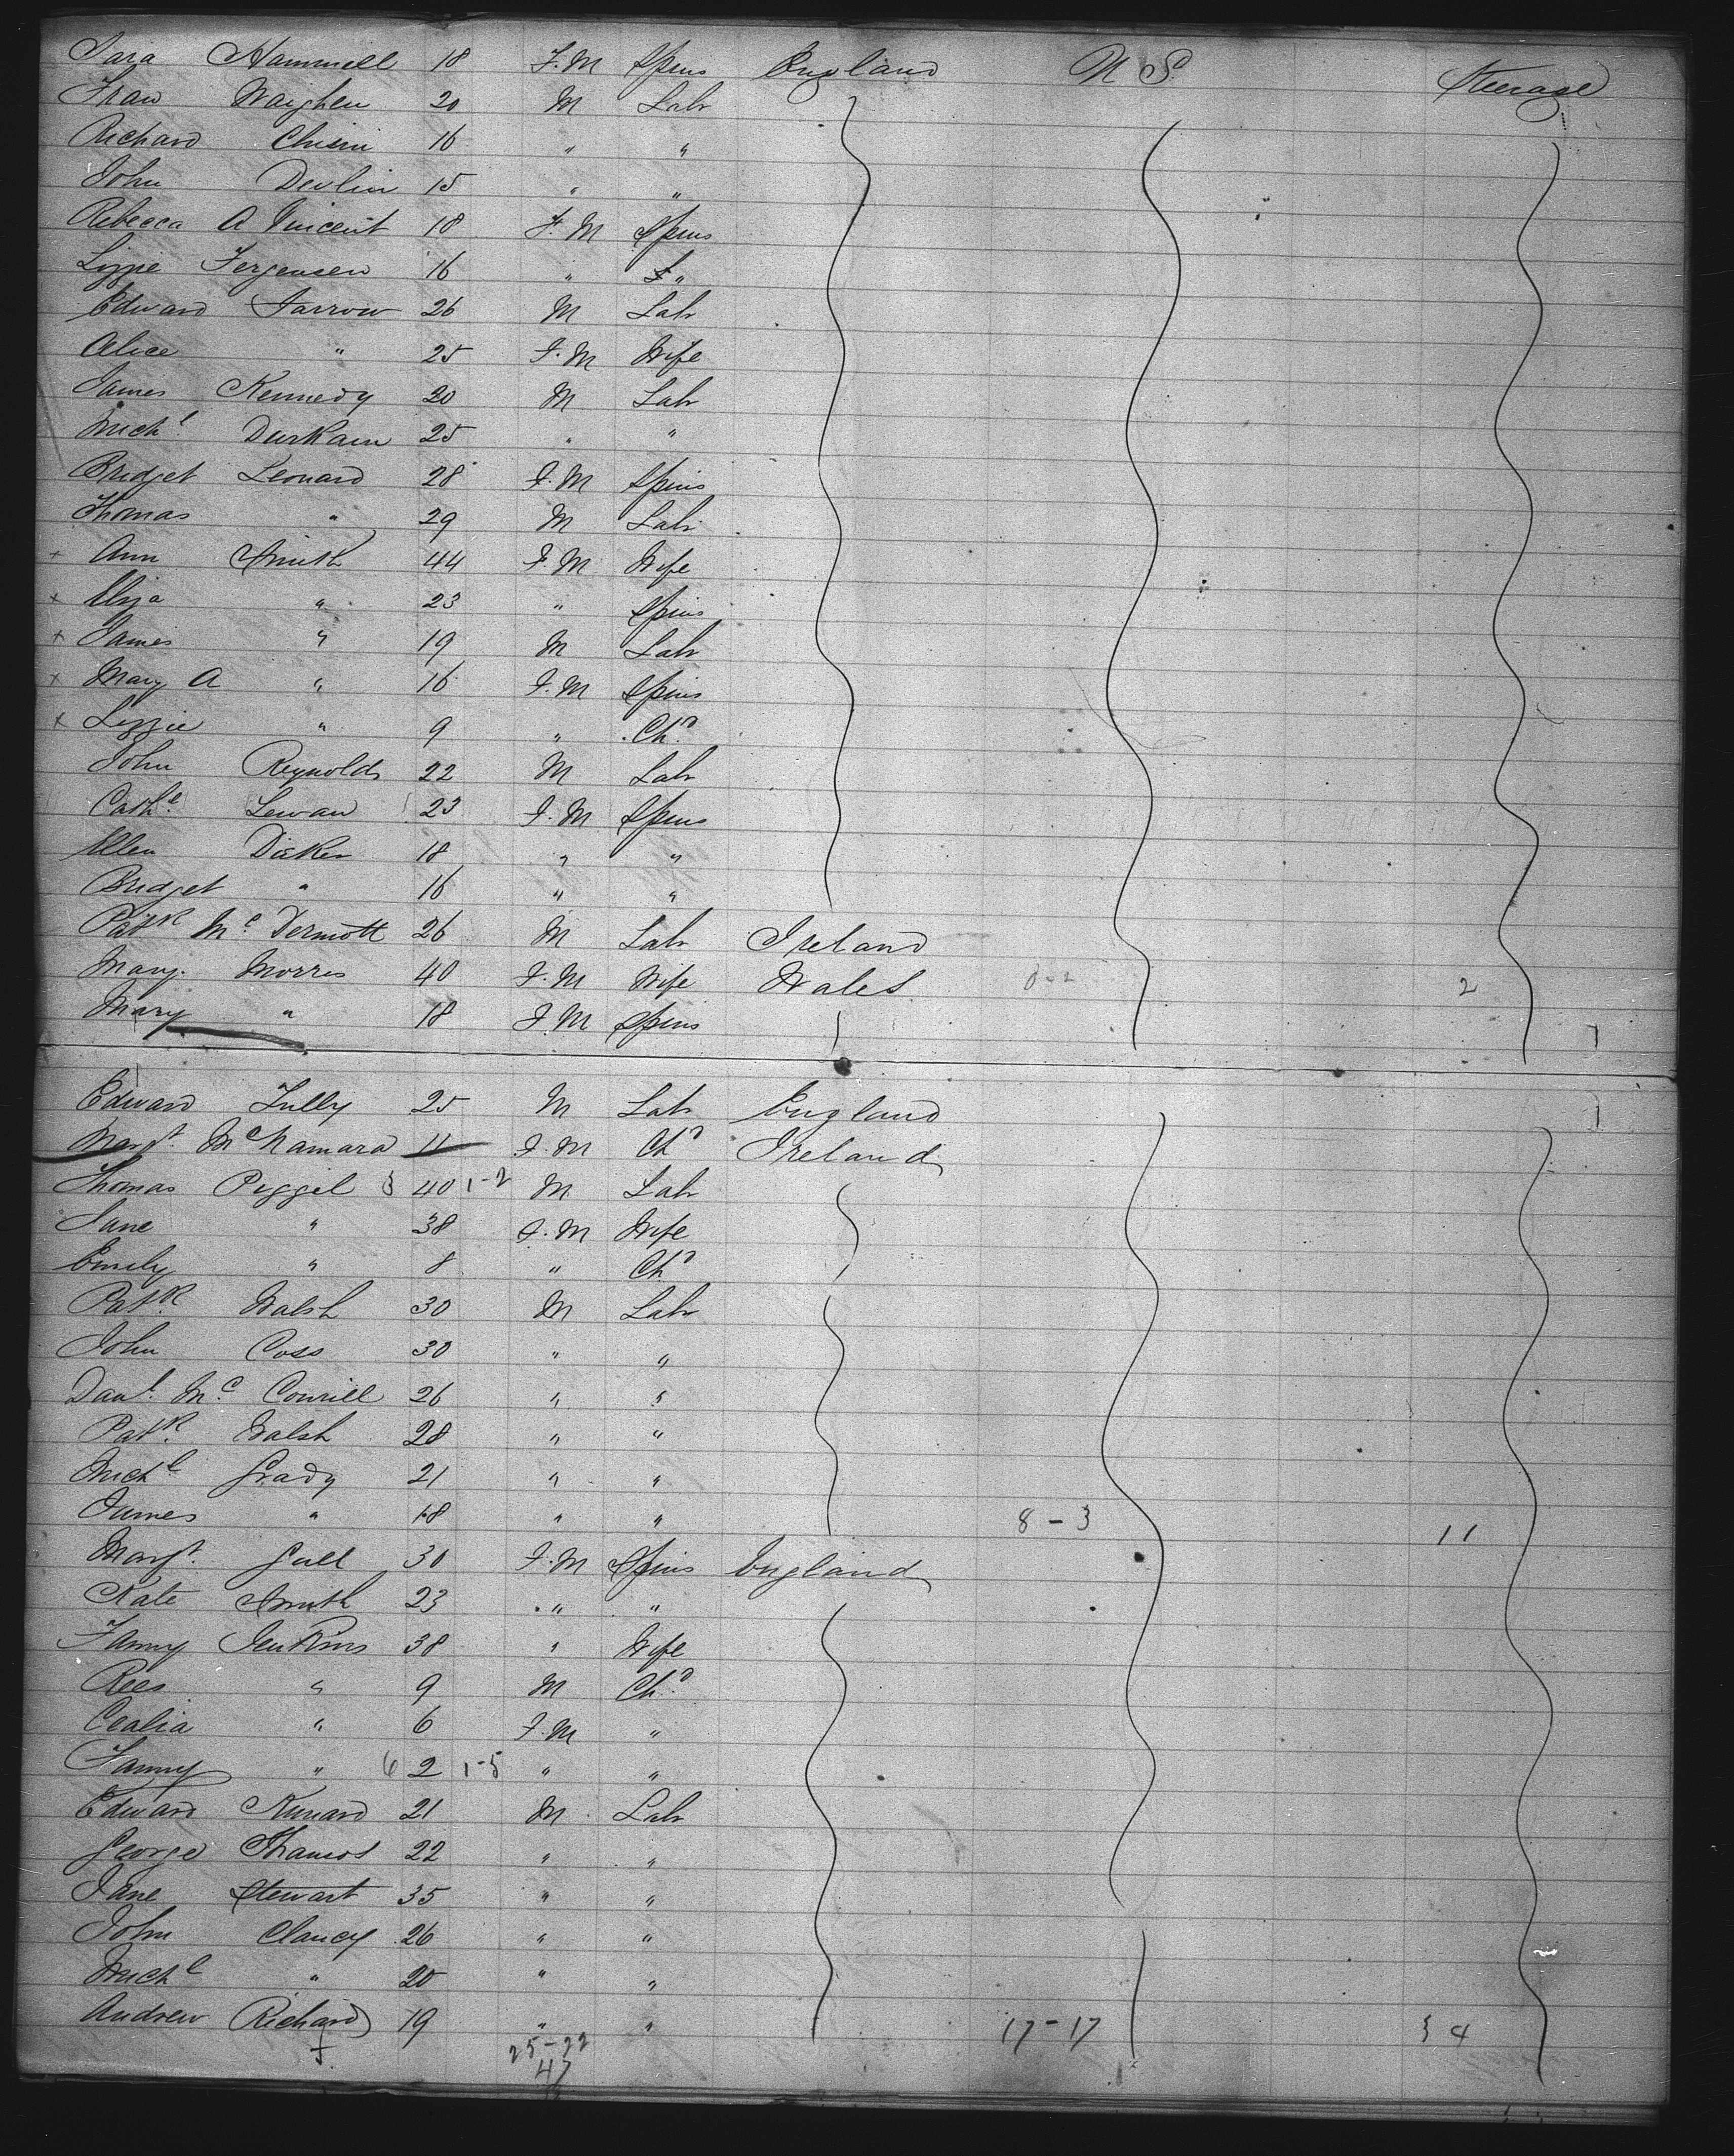 Sara Hammill 18 F.M Spins England U S Steerage
20 M Labr
Richard 16 " "
John Devlin 15 " "
Rebecca A Vincent 18 F.M Spins
Lizzie Jergensen 16 " "
Edward Farrow 26 M Labr
Alice " 25 F.M Wife
James Kennedy 20 M Labr
Michl Durkam 25 " "
Bridget Leonard 28 F.M Spins
Thomas " 29 M Labr
+ Ann Smith 44 F.M Wife
+ Eliza " 23 " Spins
+ James " 19 M Labr
+ Mary A " 16 F.M Spins
+ Lizzie " 9 " Chd
John Reynolds 22 M Labr
Cathe Lewan 23 F.M Spins
Ellen 18 " "
Bridget " 16 " "
Patk Mc Dermott 26 M Labr Ireland
Mary Morris 40 F.M Wife Wales 0-2 2
Mary " 18 F.M Spins
Edward Tully 25 M Labr England
Margt McNamara 11 F.M Chd Ireland
Thomas Piggil 3 40 1-2 M Labr
Jane " 38 F.M Wife
Emily " 8 " Chd
Patk Walsh 30 M Labr
John Coss 30 " "
Danl Mc 26 " "
Patk Walsh 28 " "
Michl Grady 21 " "
James " 18 " " 8-3 11
Margt Gull 30 F.M Spins England
Kate Smith 23 " "
Fanny Jenkins 38 " Wife
Rees " 9 M Chd
Cealia " 6 F.M "
Fanny " 6 2 1-5 " "
Edward 21 M Labr
George 22 " "
Jane Stewart 35 " "
John Clancy 26 " "
Michl " 20 " "
Andrew Richard 19 " " 17-17 34
25-22
47